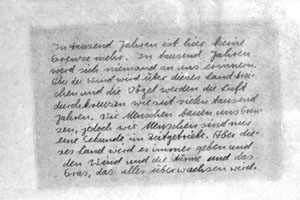 In tausend Jahren ist hier keine
Grenze mehr. In tausend Jahren
wird sich niemand an uns erinnern.
Aber der Wind wird über dieses Land strei-
chen und die Vögel werden die Luft
durchkreuzen wie seit vielen tausend
Jahren. Wir Menschen bauen uns Gren-
zen, jedoch wir Menschen sind nur
eine Sekunde im Zeitgetriebe. Aber die-
ses Land wird es immer geben und
den Wind und die Stürme und das
Gras, das alles überwachsen wird.